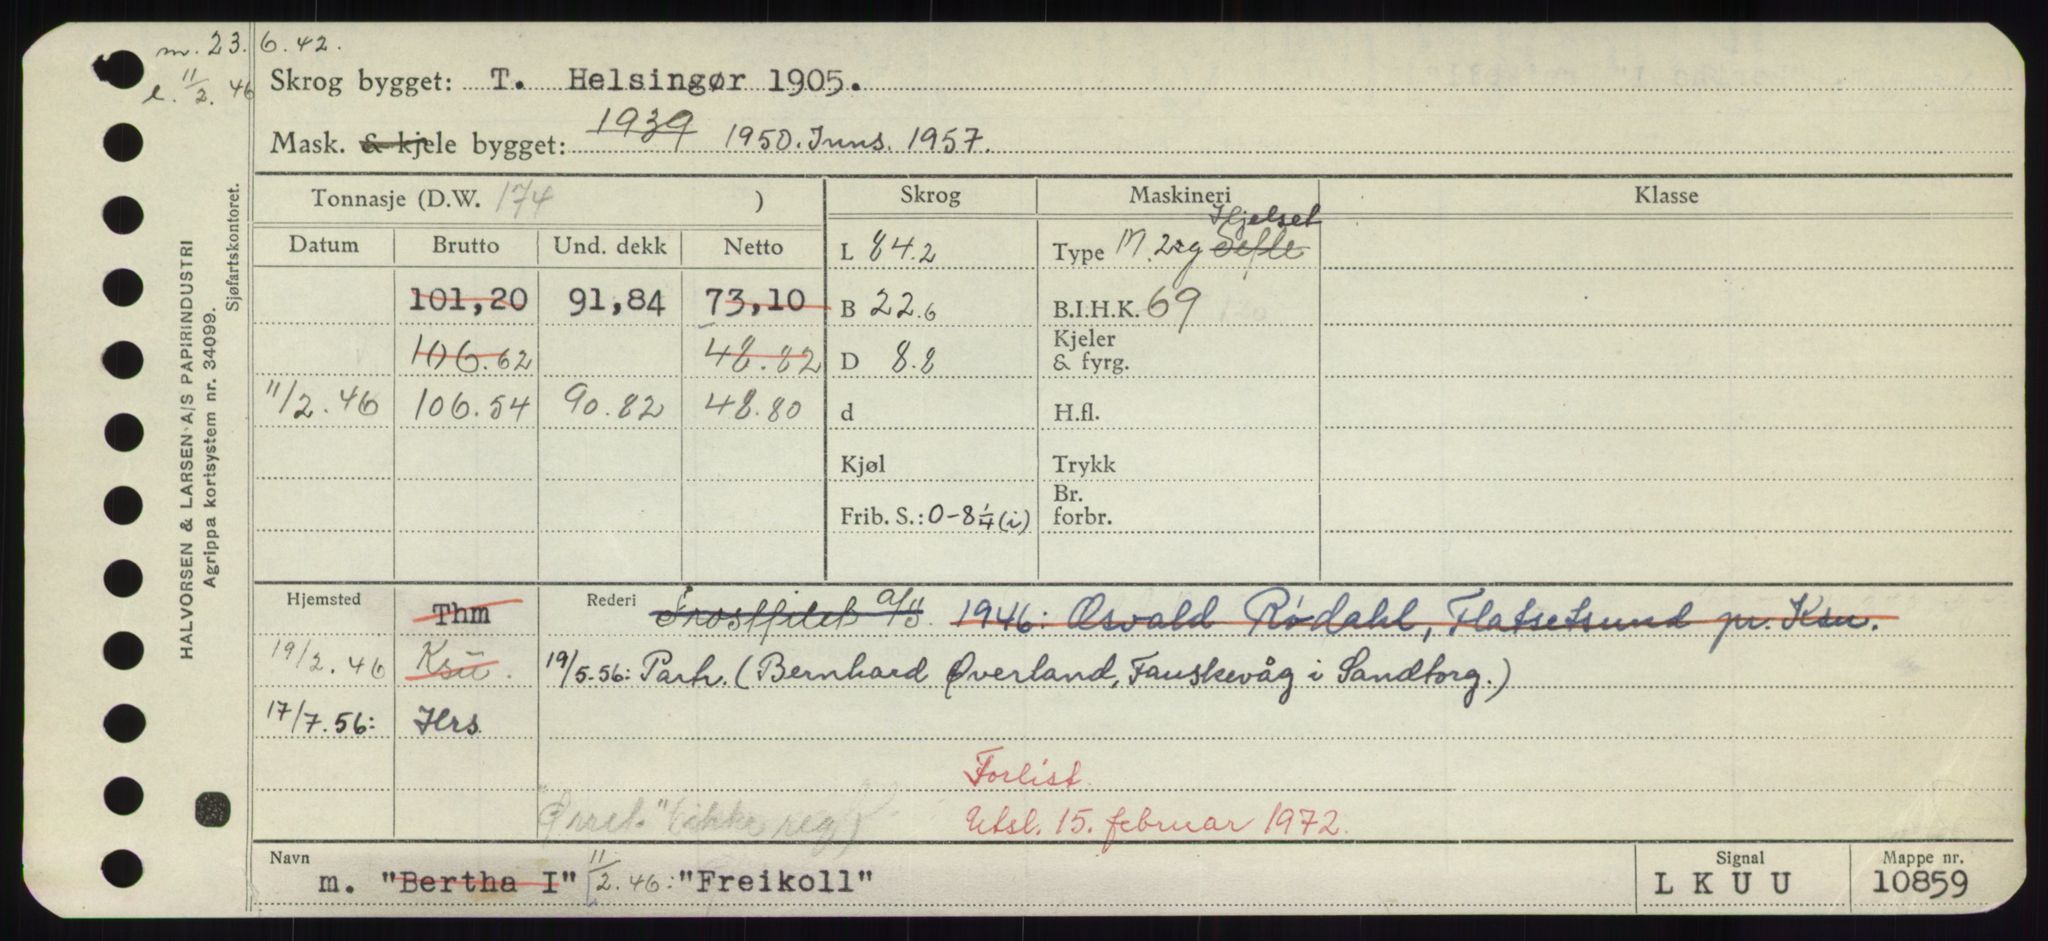 m. 23.6.42.
l. 11/2. 46
Skrog bygget: T. Helsingør 1905.
Mask. & kjele bygget: 1939 1950. Inns. 1957.
Tonnasje (D.W. 174 )
Skrog
Maskineri
Klasse
Datum Brutto Und. dekk Netto
L 84.2
Type M. 2sg Sefle Hjelset
101,20 91,84 73,10
B 22.6
B.I.H.K. 69
106.62 48.82
D 8.8
Kjeler
& fyrg.
11/2.46 106.54 90.82 48.80
d
H.fl.
Kjøl
Trykk
Frib. S.: 0-8 1/4 (i)
Br.
forbr.
Hjemsted Thm
Rederi Frostfilet A/S. 1946: Osvald Rødahl, Flatsetsund pr. Ksu.
19/2.46 Ksu.
19/5-56: Parh. (Bernhard Øverland, Fauskevåg i Sandtorg.)
17/7.56: Hrs.
Forlist.
"Ørret" (ikke reg)
Utsl. 15. februar 1972.
Navn m. "Bertha I" 11/2.46: "Freikoll"
Signal LKUU
Mappe nr. 10859
HALVORSEN & LARSEN A/S PAPIRINDUSTRI
Agrippa kortsystem nr. 34099.
Sjøfartskontoret.